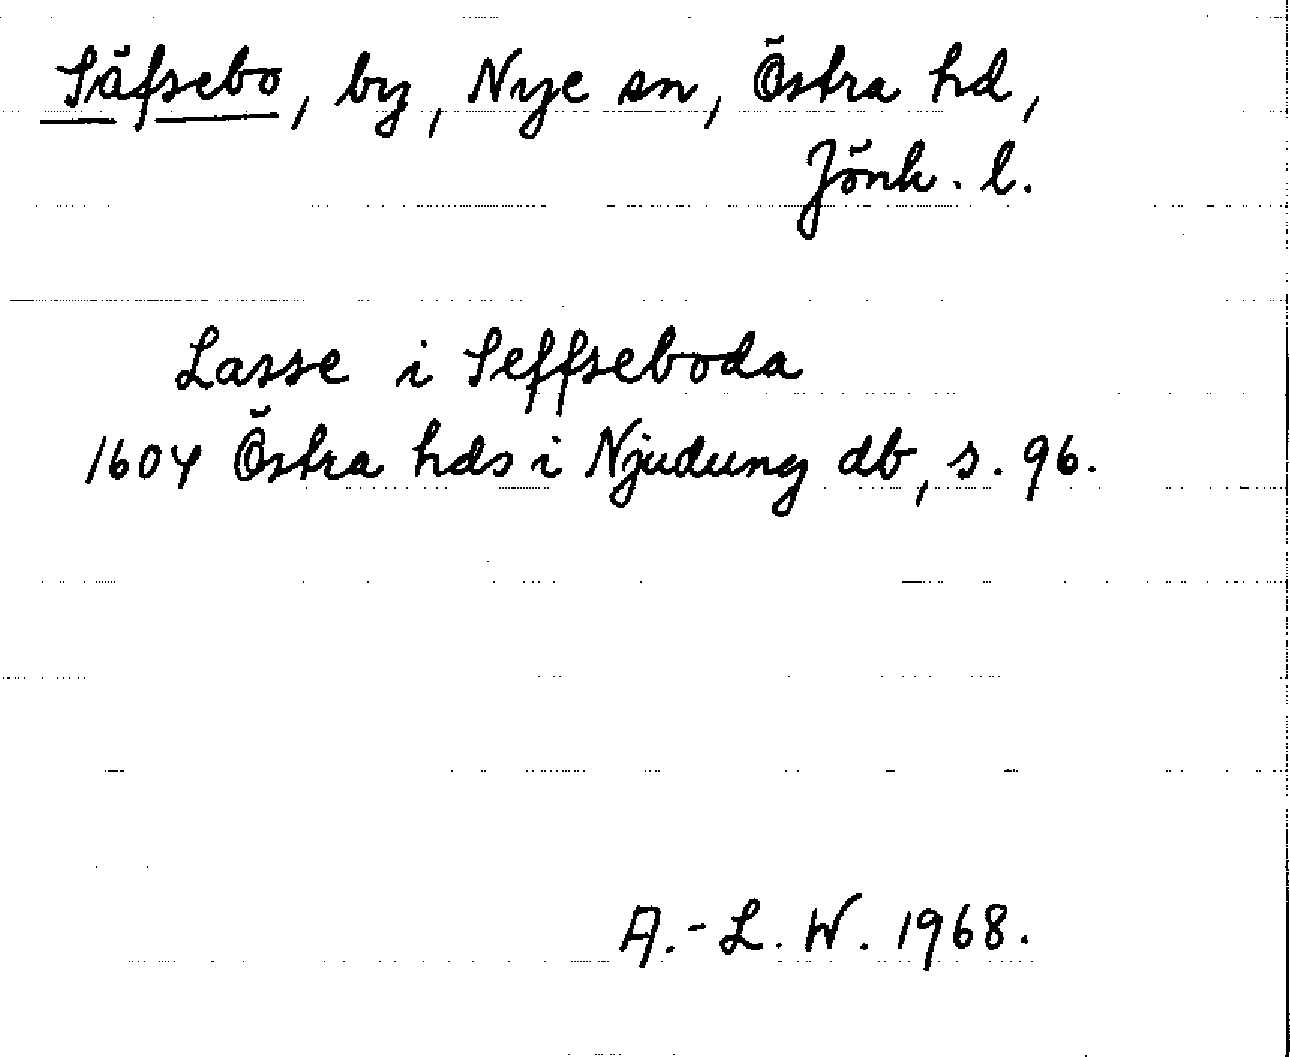 Säfsebo, by, Nye sn, Östra hd,
Jönk. l.
Lasse i Seffseboda
1604 Östra hds i Njudung db, s. 96.
A.-L. W. 1968.